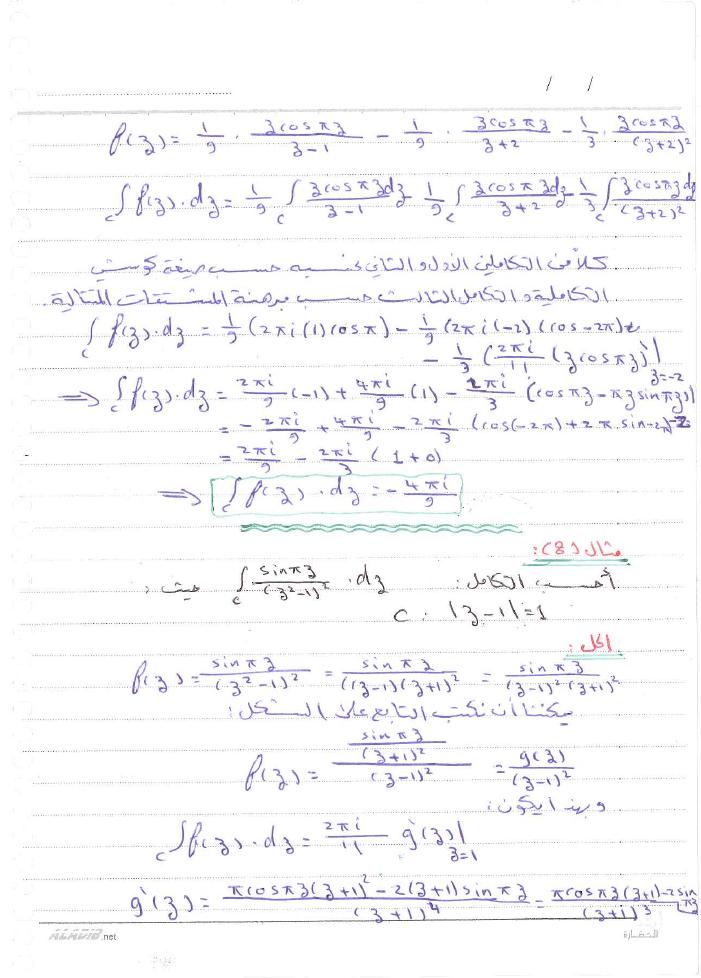 / /
f(z) = 1/9 · zcosπz/(z-1) - 1/9 · zcosπz/(z+2) - 1/3 · zcosπz/(z+2)²
∫_C f(z)·dz = 1/9 ∫_C zcosπzdz/(z-1) - 1/9 ∫_C zcosπzdz/(z+2) - 1/3 ∫_C zcosπzdz/(z+2)²
كلاً من التكاملين الأول والثاني نحسبه حسب صيغة كوشي
التكاملية والتكامل الثالث حسب مبرهنة المشتقات المتتالية.
∫_C f(z)·dz = 1/9 (2πi(1)cosπ) - 1/9 (2πi(-2)(cos-2π)
- 1/3 (2πi/1! (zcosπz)'|z=-2
⇒ ∫_C f(z)·dz = 2πi/9 (-1) + 4πi/9 (1) - 2πi/3 (cosπz - πzsinπz)|-2
= - 2πi/9 + 4πi/9 - 2πi/3 (cos(-2π) + 2π.sin-2π)
= 2πi/9 - 2πi/3 (1+0)
⇒ ∫_C f(z)·dz = - 4πi/9
مثال (8):
أحسب التكامل: ∫_C sinπz/(z²-1)² ·dz حيث:
C: |z-1|=1
الحل:
f(z) = sinπz/(z²-1)² = sinπz/((z-1)(z+1)² = sinπz/(z-1)²(z+1)²
يمكننا أن نكتب التابع على الشكل:
f(z) = (sinπz/(z+1)²)/(z-1)² = g(z)/(z-1)²
وبهذا يكون:
∫_C f(z)·dz = 2πi/1! g'(z)|z=1
g'(z) = πcosπz(z+1)² - 2(z+1)sinπz/(z+1)⁴ = πcosπz(z+1)-2sinπz/(z+1)³
ALADIB.net
الحضارة